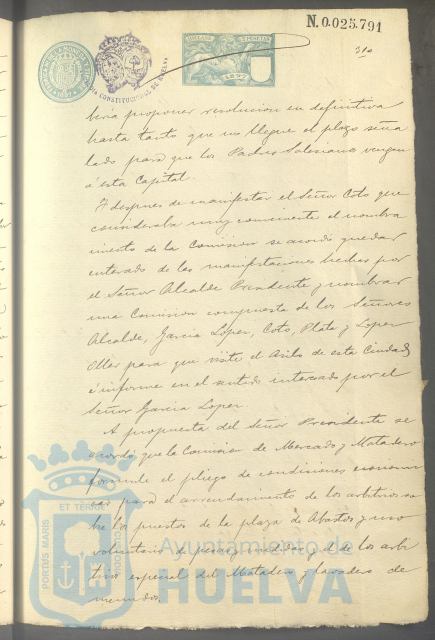 N.0.025.791
310
berá proponer resolución en definitiva
hasta tanto que no llegue el plazo seña
lado para que los Padres Salesianos vengan
á esta Capital.
Y despues de manifestar el Señor Coto que
consideraba muy conveniente el nombra
miento de la Comision se acordó quedar
enterado de las manifestaciones hechas por
el Señor Alcalde Presidente y nombrar
una Comision compuesta de los Señores
Alcalde, Garcia Lopez, Coto, Plata y Lopez
para que visite el Asilo de esta Ciudad
é informe en el sentido interesado por el
Señor Garcia Lopez.
A propuesta del Señor Presidente se
acordó que la Comision de Mercado y Matadero
formule el pliego de condiciones económi
cas para el arrendamiento de los arbitrios so
bre los puestos de la plaza de Abastos y uso
voluntario de pesas y medidas y el de los arbi
trios especial del Matadero y lavadero de
menudos.
Ayuntamiento de
HUELVA
PORTUS MARIS ET TERRE CUSTODIA